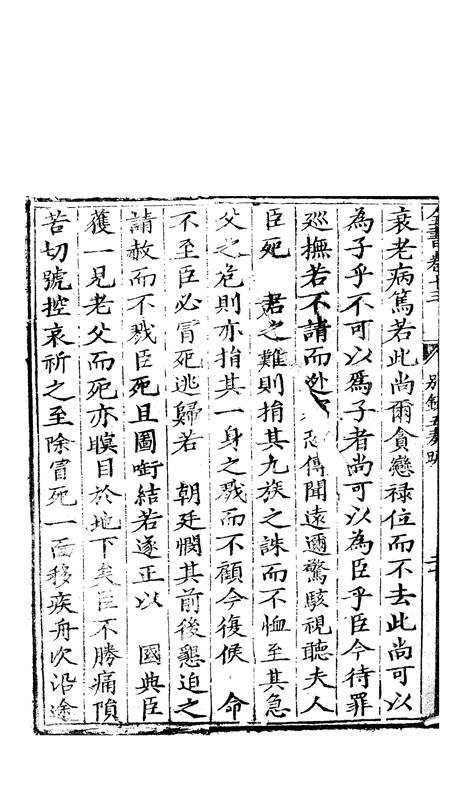 全書卷十三 別錄五奏疏
衰老病篤若此尚爾貪戀祿位而不去此尚可以
為子乎不可以爲子者尚可以為臣乎臣今待罪
廵撫若不請而逃 恐傳聞遠邇驚駭視聽夫人
臣死 君之難則捐其九族之誅而不恤至其急
父之危則亦捐其一身之戮而不顧今復候 命
不至臣必冐死逃歸若 朝廷憫其前後懇迫之
請赦而不戮臣死且圖啣結若遂正以 國典臣
獲一見老父而死亦瞑目於地下矣臣不勝痛隕
苦切號控哀祈之至除冐死一面移疾舟次沿途